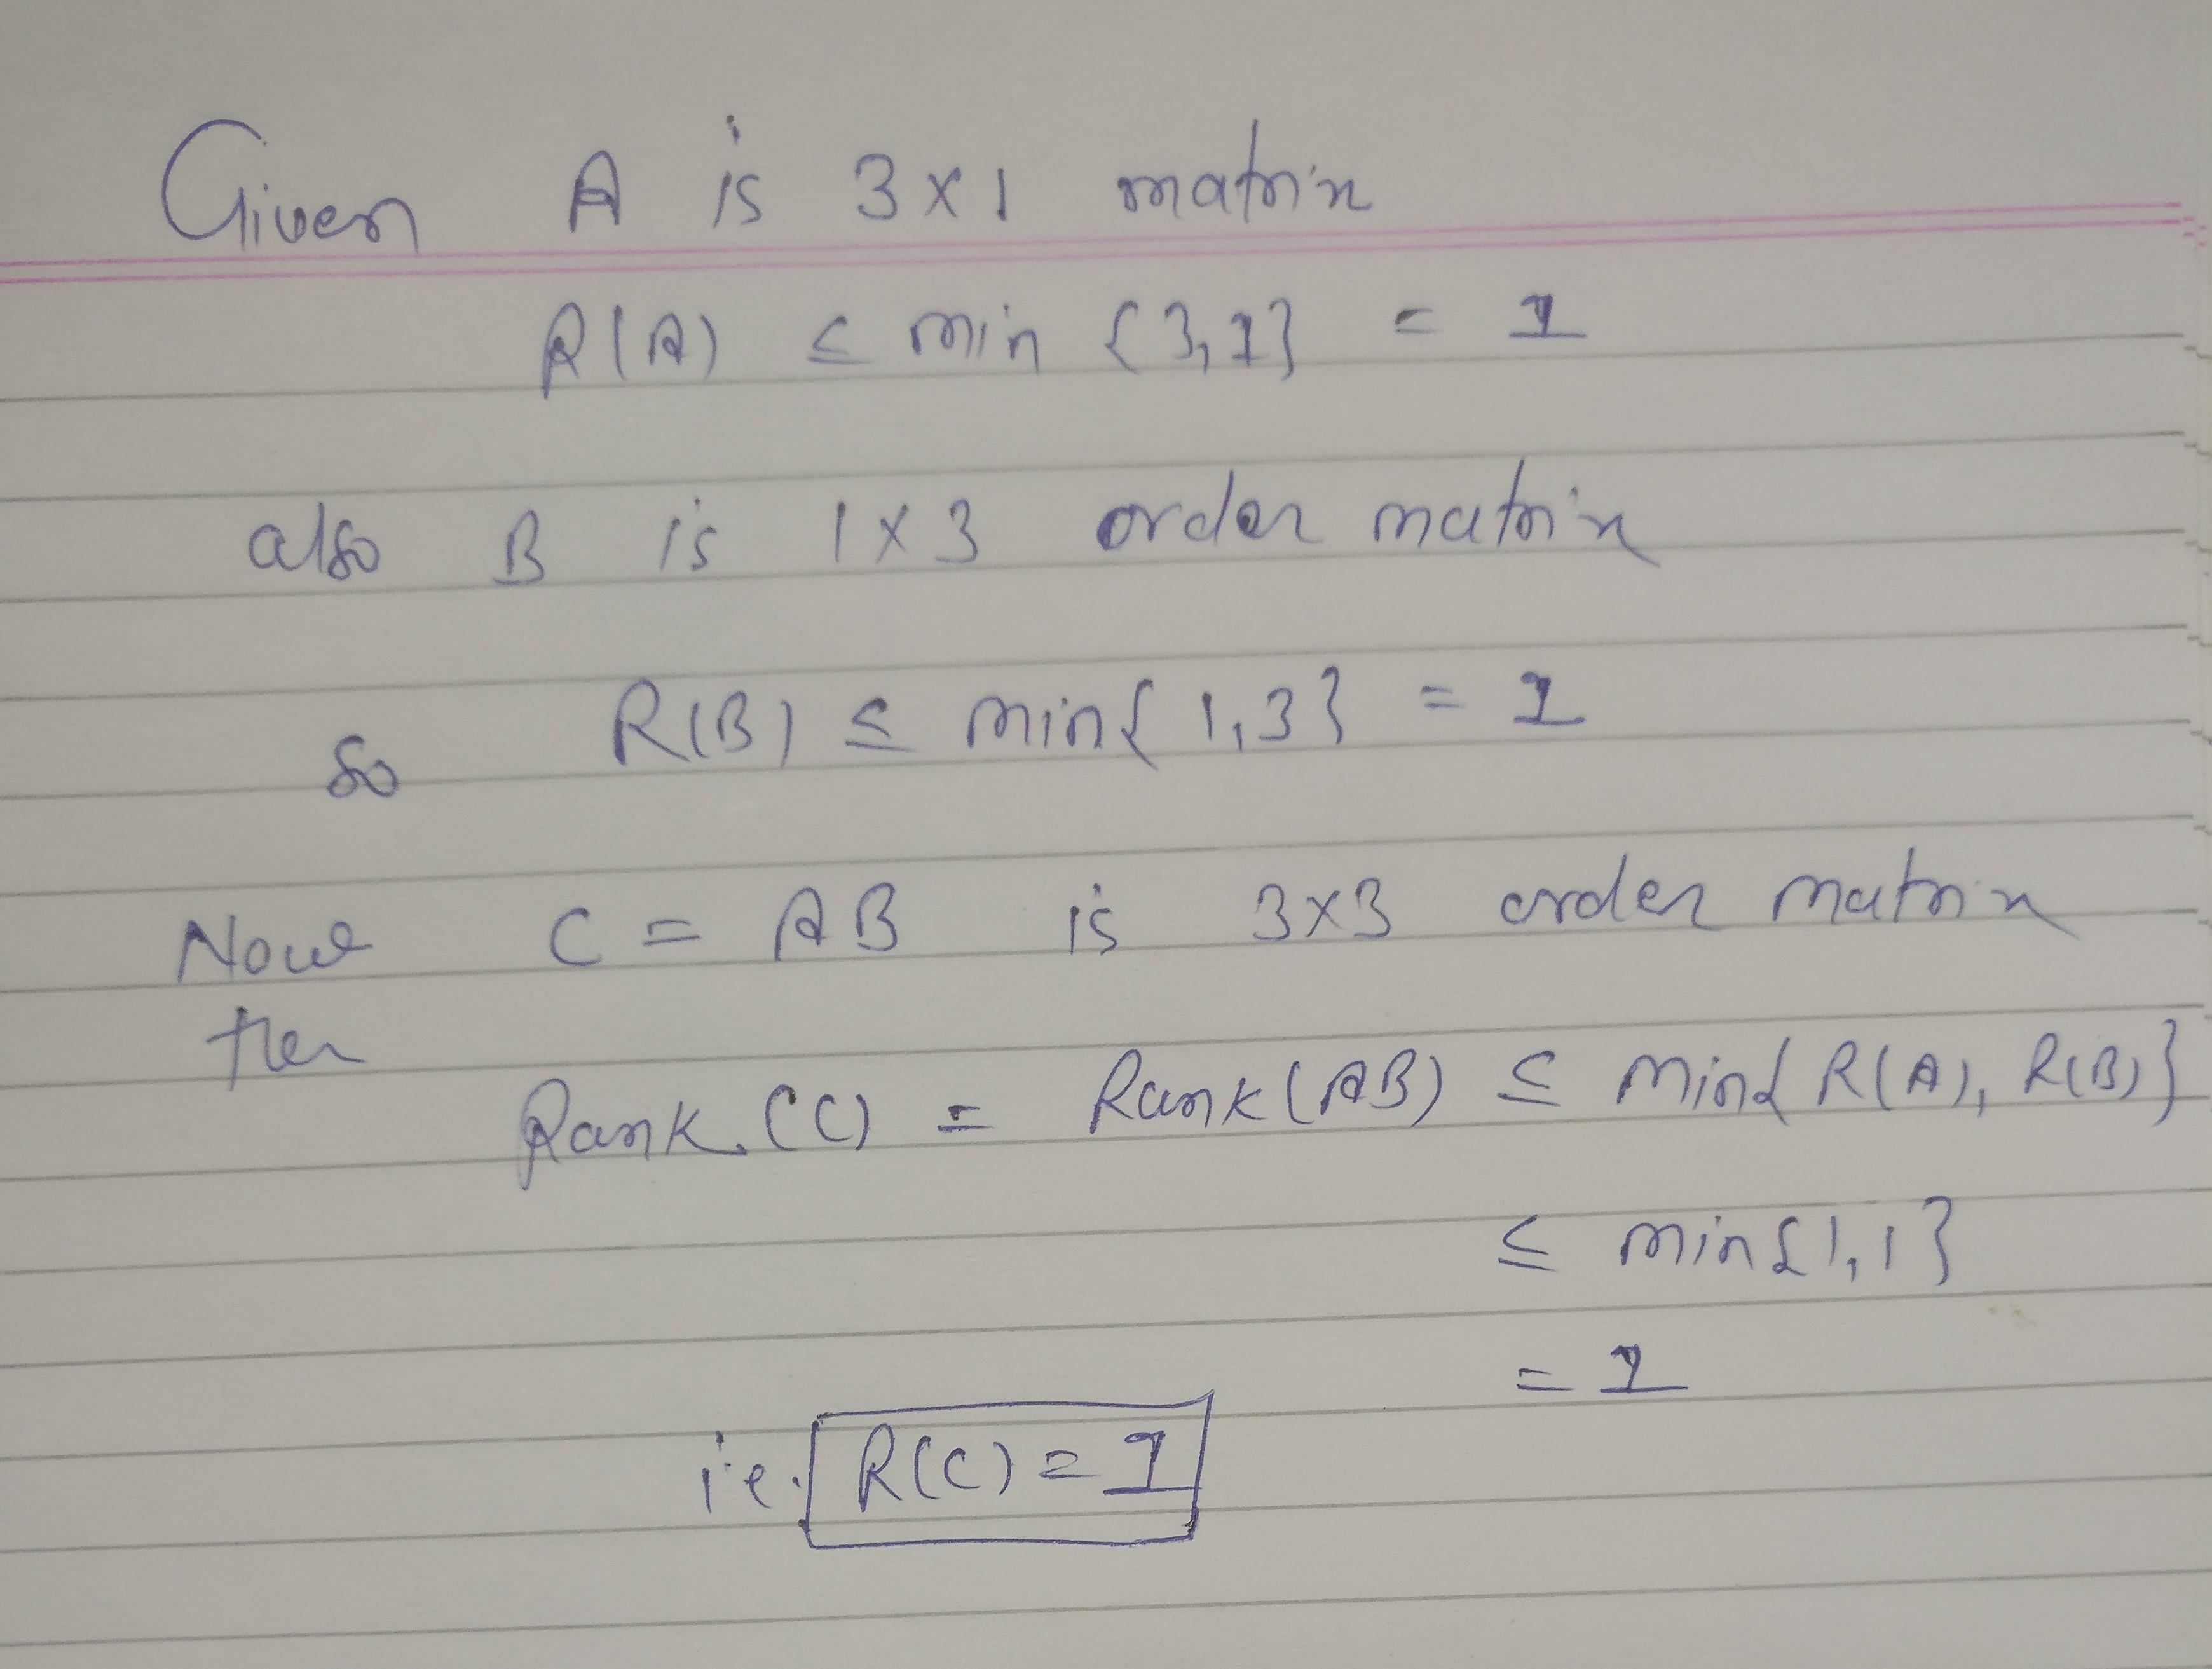 Given A is 3×1 matrix
R(A) ≤ min {3,1} = 1
also B is 1×3 order matrix
so R(B) ≤ min{1,3} = 1
Now C = AB is 3×3 order matrix
then
Rank.(C) = Rank(AB) ≤ min{R(A), R(B)}
≤ min{1,1}
= 1
i.e. R(C) = 1